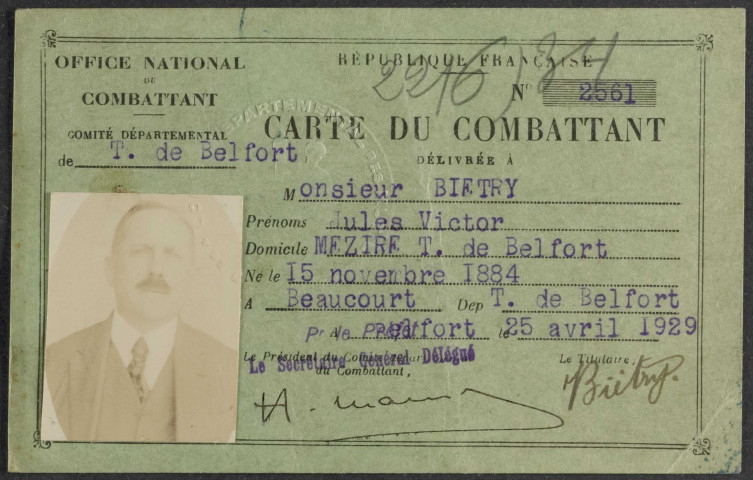 OFFICE NATIONAL
DU
COMBATTANT
COMITÉ DÉPARTEMENTAL
de T. de Belfort
RÉPUBLIQUE FRANÇAISE
Nº 2561
CARTE DU COMBATTANT
DÉLIVRÉE À
Monsieur BIETRY
Prénoms Jules Victor
Domicile MEZIRE T. de Belfort
Né le 15 novembre 1884
A Beaucourt Dep T. de Belfort
A Belfort le 25 avril 1929
Pr le Préfet
Le Président du Comité
du Combattant,
Le Secrétaire Général Délégué
Le Titulaire,
Biétry.